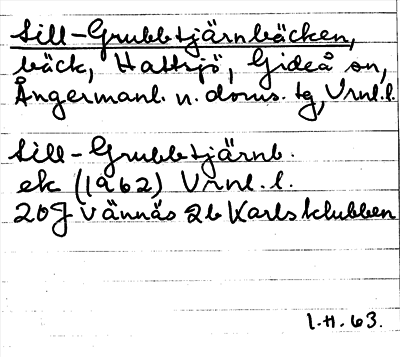 Lill-Grubbtjärnbäcken,
bäck, Hattsjö, Gideå sn,
Ångermanl. n. doms. tg, Vrnl. l.
Lill-Grubbtjärnb.
ek (1962) Vrnl. l.
20J Vännäs 2b Karlsklubben
1.H.63.